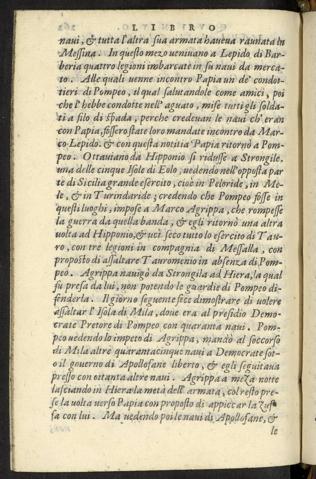 LIBRO
navi, & tutta l'altra sua armata haueua raunata in
Messina. In questo mezo uenivano a Lepido di Bar-
beria quattro legioni imbarcate in su navi da merca-
to. Alle quali venne incontro Papia un de' condot-
tieri di Pompeo, il qual salutandole come amici, poi
che l'hebbe condotte nell'aguato, mise tutti gli solda-
ti a fil di spada, perche credevan le navi ch'eran
con Papia, fossero state loro mandate incontro da Mar-
co Lepido. & con questa notitia Papia ritornò a Pom-
peo. Ottaviano da Hipponio si ridusse a Strongile,
una delle cinque Isole di Eolo, vedendo nell'opposta par
te di Sicilia grande esercito, cioè in Peloride, in Me-
le, & in Turindaride; credendo che Pompeo fosse in
questi luoghi, impose a Marco Agrippa, che rompesse
la guerra da quella banda, & egli ritornò una altra
volta ad Hipponio, & uci seco tutto lo esercito di Tau-
ro, con tre legioni in compagnia di Messalla, con
proposito di assaltare Tauromenio in absenza di Pom-
peo. Agrippa navigò da Strongila ad Hiera, la qual
fu presa da lui, non potendo le guardie di Pompeo di-
fenderla. Il giorno seguente fece dimostrare di volere
assaltar l'Isola di Mila, dove era al presidio Demo-
crate Pretore di Pompeo con quaranta navi. Pom-
peo vedendo lo impeto di Agrippa, mandò al soccorso
di Mila altre quarantacinque navi a Democrate sot-
to il governo di Apollofane liberto, & egli seguitava
presso con ottanta altre navi. Agrippa a meza notte
lasciando in Hiera la metà dell'armata, col resto pre-
se la volta verso Papia con proposito di appiccar la zuf-
fa con lui. Ma vedendo poi le navi di Apollofane, &
le